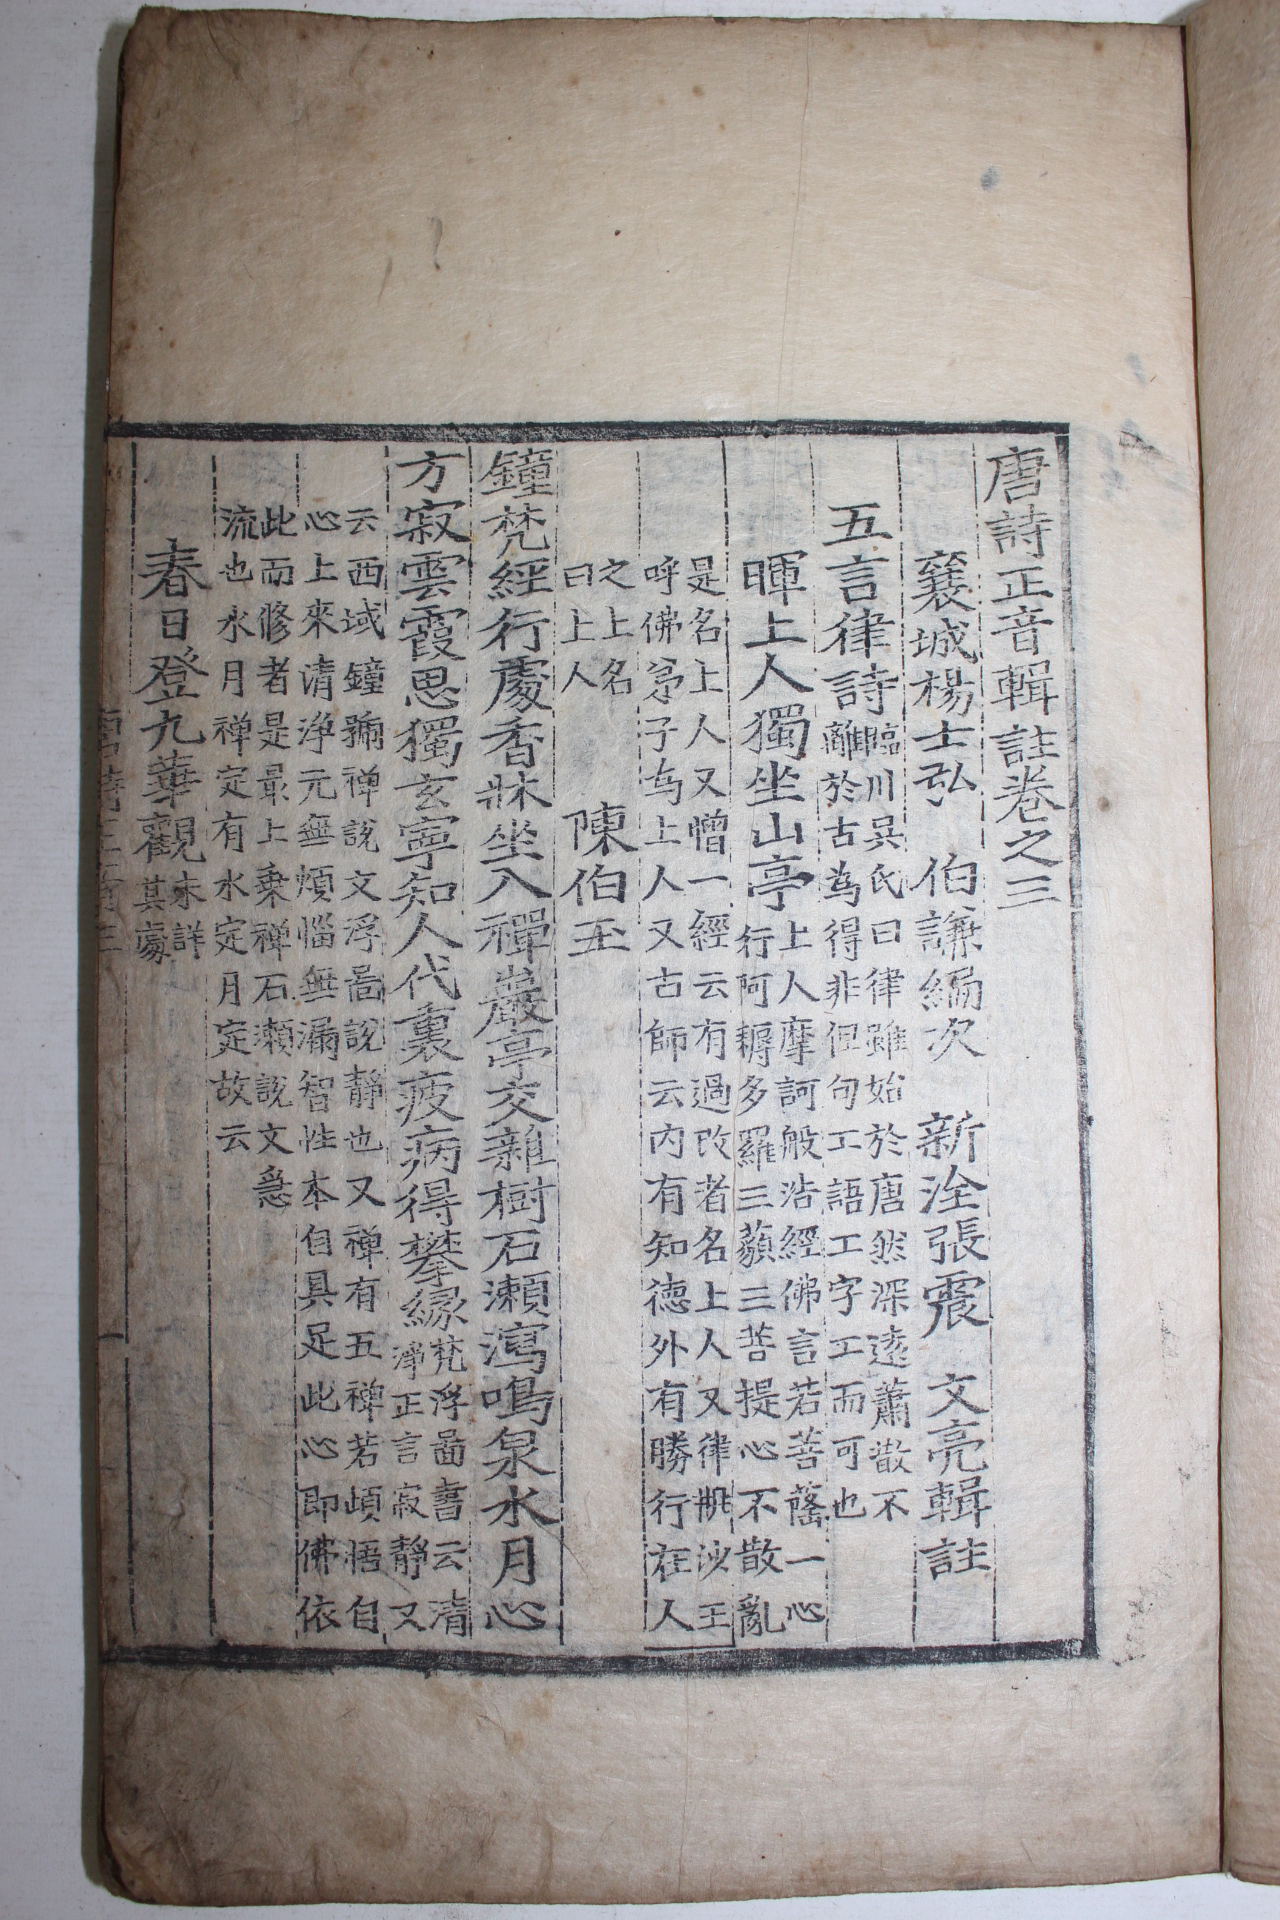 唐詩正音輯註卷之三
襄城楊士弘　伯謙編次　新淦張震　文亮輯註
五言律詩
臨川吳氏曰律雖始於唐然深遠蕭散不
離於古為得非但句工語工字工而可也
暉上人獨坐山亭
上人摩訶般沽經佛言若菩薩一心
行阿耨多羅三藐三菩提心不散亂
是名上人又憎一經云有過改者名上人又律瓶沙王
呼佛㐱子为上人又古師云内有知德外有勝行在人
之上名
曰上人
陳伯玉
鐘梵經行處香牀坐入禪巖亭交雜樹石瀨瀉鳴泉水月心
方寂雲霞思獨玄寧知人代裏疲病得攀緣
梵浮啚書云清
淨正言寂靜又
云西域鐘號禅說文浮啚說靜也又禅有五禅若頓悟自
心上來清浄元無煩惱無漏智性本自具足此心即佛依
此而修者是最上乗禅石瀨說文急
流也水月禅定有水定月定故云
春日登九華觀
未詳
其處